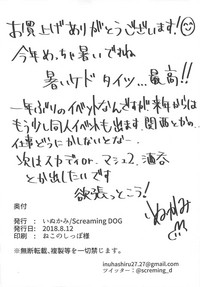 お買上げありがとうございます!
今年めっちゃ暑いですね
暑いケドタイツ…最高!!
一年ぶりのイベントなんですが来年からは
もう少し同人イベントも出ます。関西とか…
仕事どうにかしないとな…
次はスカディor マシュ2、酒呑
とか出したいです
欲張っとこう!
いぬかみ
奥付
発行 : いぬかみ/Screaming DOG
発行日 : 2018.8.12
印刷 : ねこのしっぽ様
※無断転載、複製等を一切禁じます。
inuhashiru27.27@gmail.com
ツイッター : @screming_d